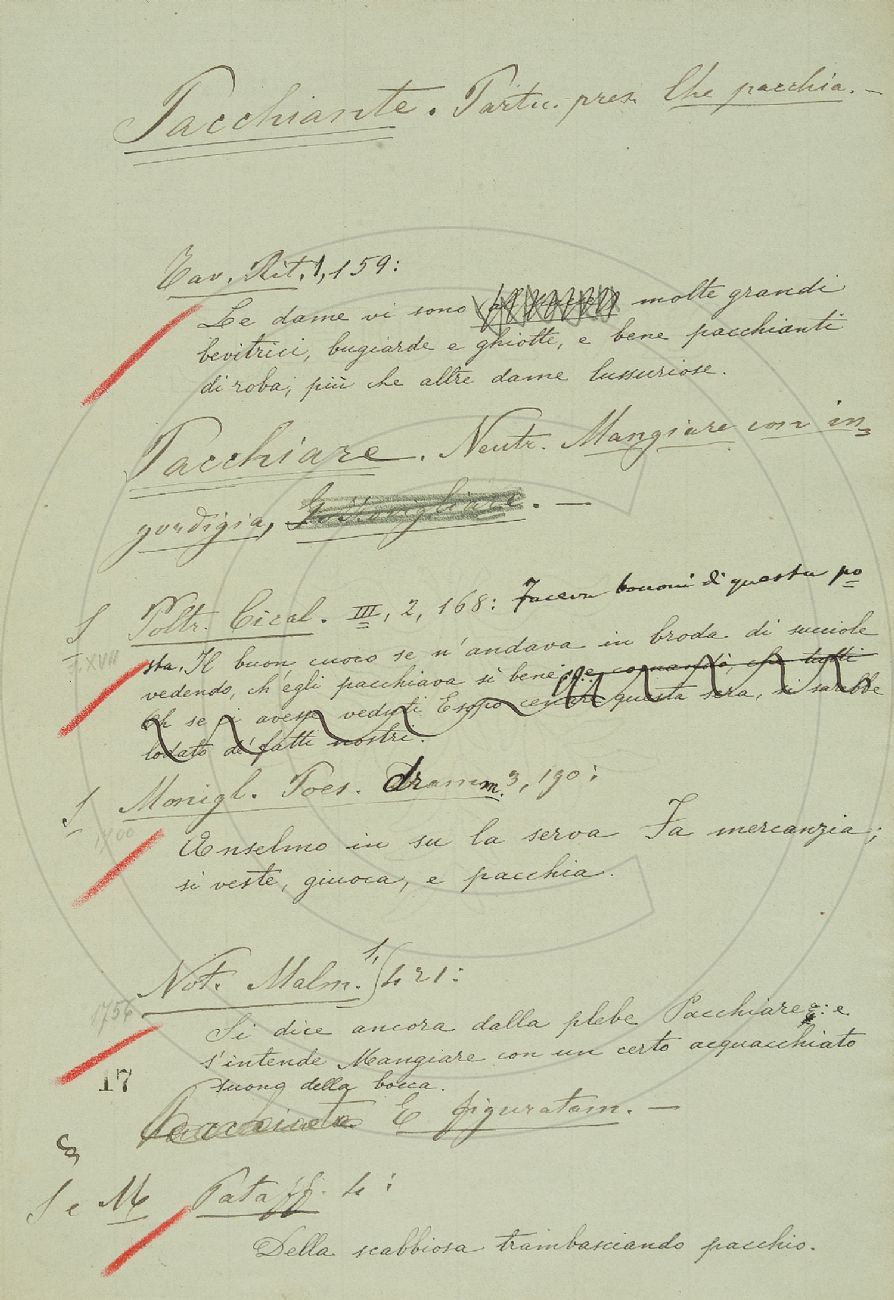 Pacchiante. Partic. pres. Che pacchia. —
Tav. Rit. 1, 159:
Le dame vi sono molte grandi
bevitrici, bugiarde e ghiotte, e bene pacchianti
di roba; più che altre dame lussuriose.
Pacchiare. Neutr. Mangiare con in=
gordigia, . —
S Poltr. Cical. III, 2, 168: Faceva bocconi di questa po=
F. XVII sta. Il buon cuoco se n'andava in broda di succiole
vedendo, ch'egli pacchiava sì bene, e comandò, che tutti
Ch se i avesse veduti Esopo cenare questa sera, si sarebbe
lodato de' fatti nostri.
S Monigl. Poes. dramm. 3, 190:
1700
Anselmo in su la serva Fa mercanzia;
si veste, giuoca, e pacchia.
Not. Malm. 1, 421:
1756
Si dice ancora dalla plebe Pacchiare: e
s'intende Mangiare con un certo acquacchiato
suono della bocca.
17
§ E figuratam. —
S e M Pataff. 4:
Della scabbiosa trambasciando pacchio.